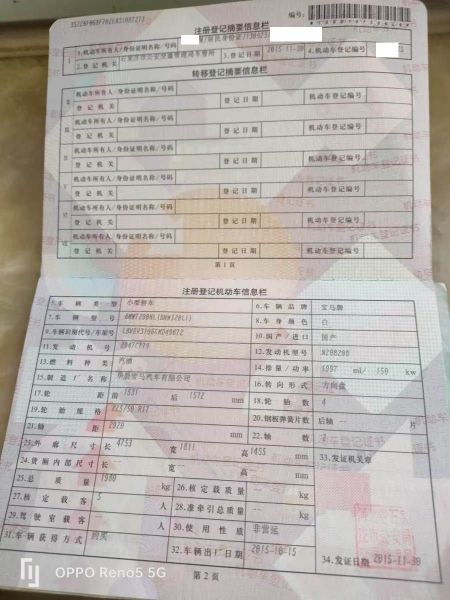 注册登记摘要信息栏
编号:
1.机动车所有人/身份证明名称/号码
2.登记机关 石家庄市公安交通管理局车管所 3.登记日期 2015-11-30 4.机动车登记编号
转移登记摘要信息栏
机动车所有人/身份证明名称/号码
登记机关 登记日期 机动车登记编号
机动车所有人/身份证明名称/号码
登记机关 登记日期 机动车登记编号
机动车所有人/身份证明名称/号码
登记机关 登记日期 机动车登记编号
机动车所有人/身份证明名称/号码
登记机关 登记日期 机动车登记编号
机动车所有人/身份证明名称/号码
登记机关 登记日期 机动车登记编号
机动车所有人/身份证明名称/号码
登记机关 登记日期 机动车登记编号
第1页
注册登记机动车信息栏
5.车辆类型 小型轿车 6.车辆品牌 宝马牌
7.车辆型号 8.车身颜色 白
9.车辆识别代号/车架号 10.国产/进口 国产
11.发动机号 12.发动机型号 N20B20D
13.燃料种类 汽油 14.排量/功率 1997 ml/ kw
15.制造厂名称 华晨宝马汽车有限公司 16.转向形式 方向盘
17.轮距 前 1531 后 1572 mm 18.轮胎数 4
19.轮胎规格 225/50 R17 20.钢板弹簧片数 后轴 片
21.轴距 2920 mm 22.轴数 2
23.外廓尺寸 长 4753 宽 1811 高 1455 mm 33.发证机关章
24.货厢内部尺寸 长 宽 高 mm
25.总质量 kg 26.核定载质量 kg
27.核定载客 5 人 28.准牵引总质量 kg
29.驾驶室载客 人 30.使用性质 非营运
31.车辆获得方式 购买 32.车辆出厂日期 2015-10-15 34.发证日期 2015-11-30
第2页
OPPO Reno5 5G